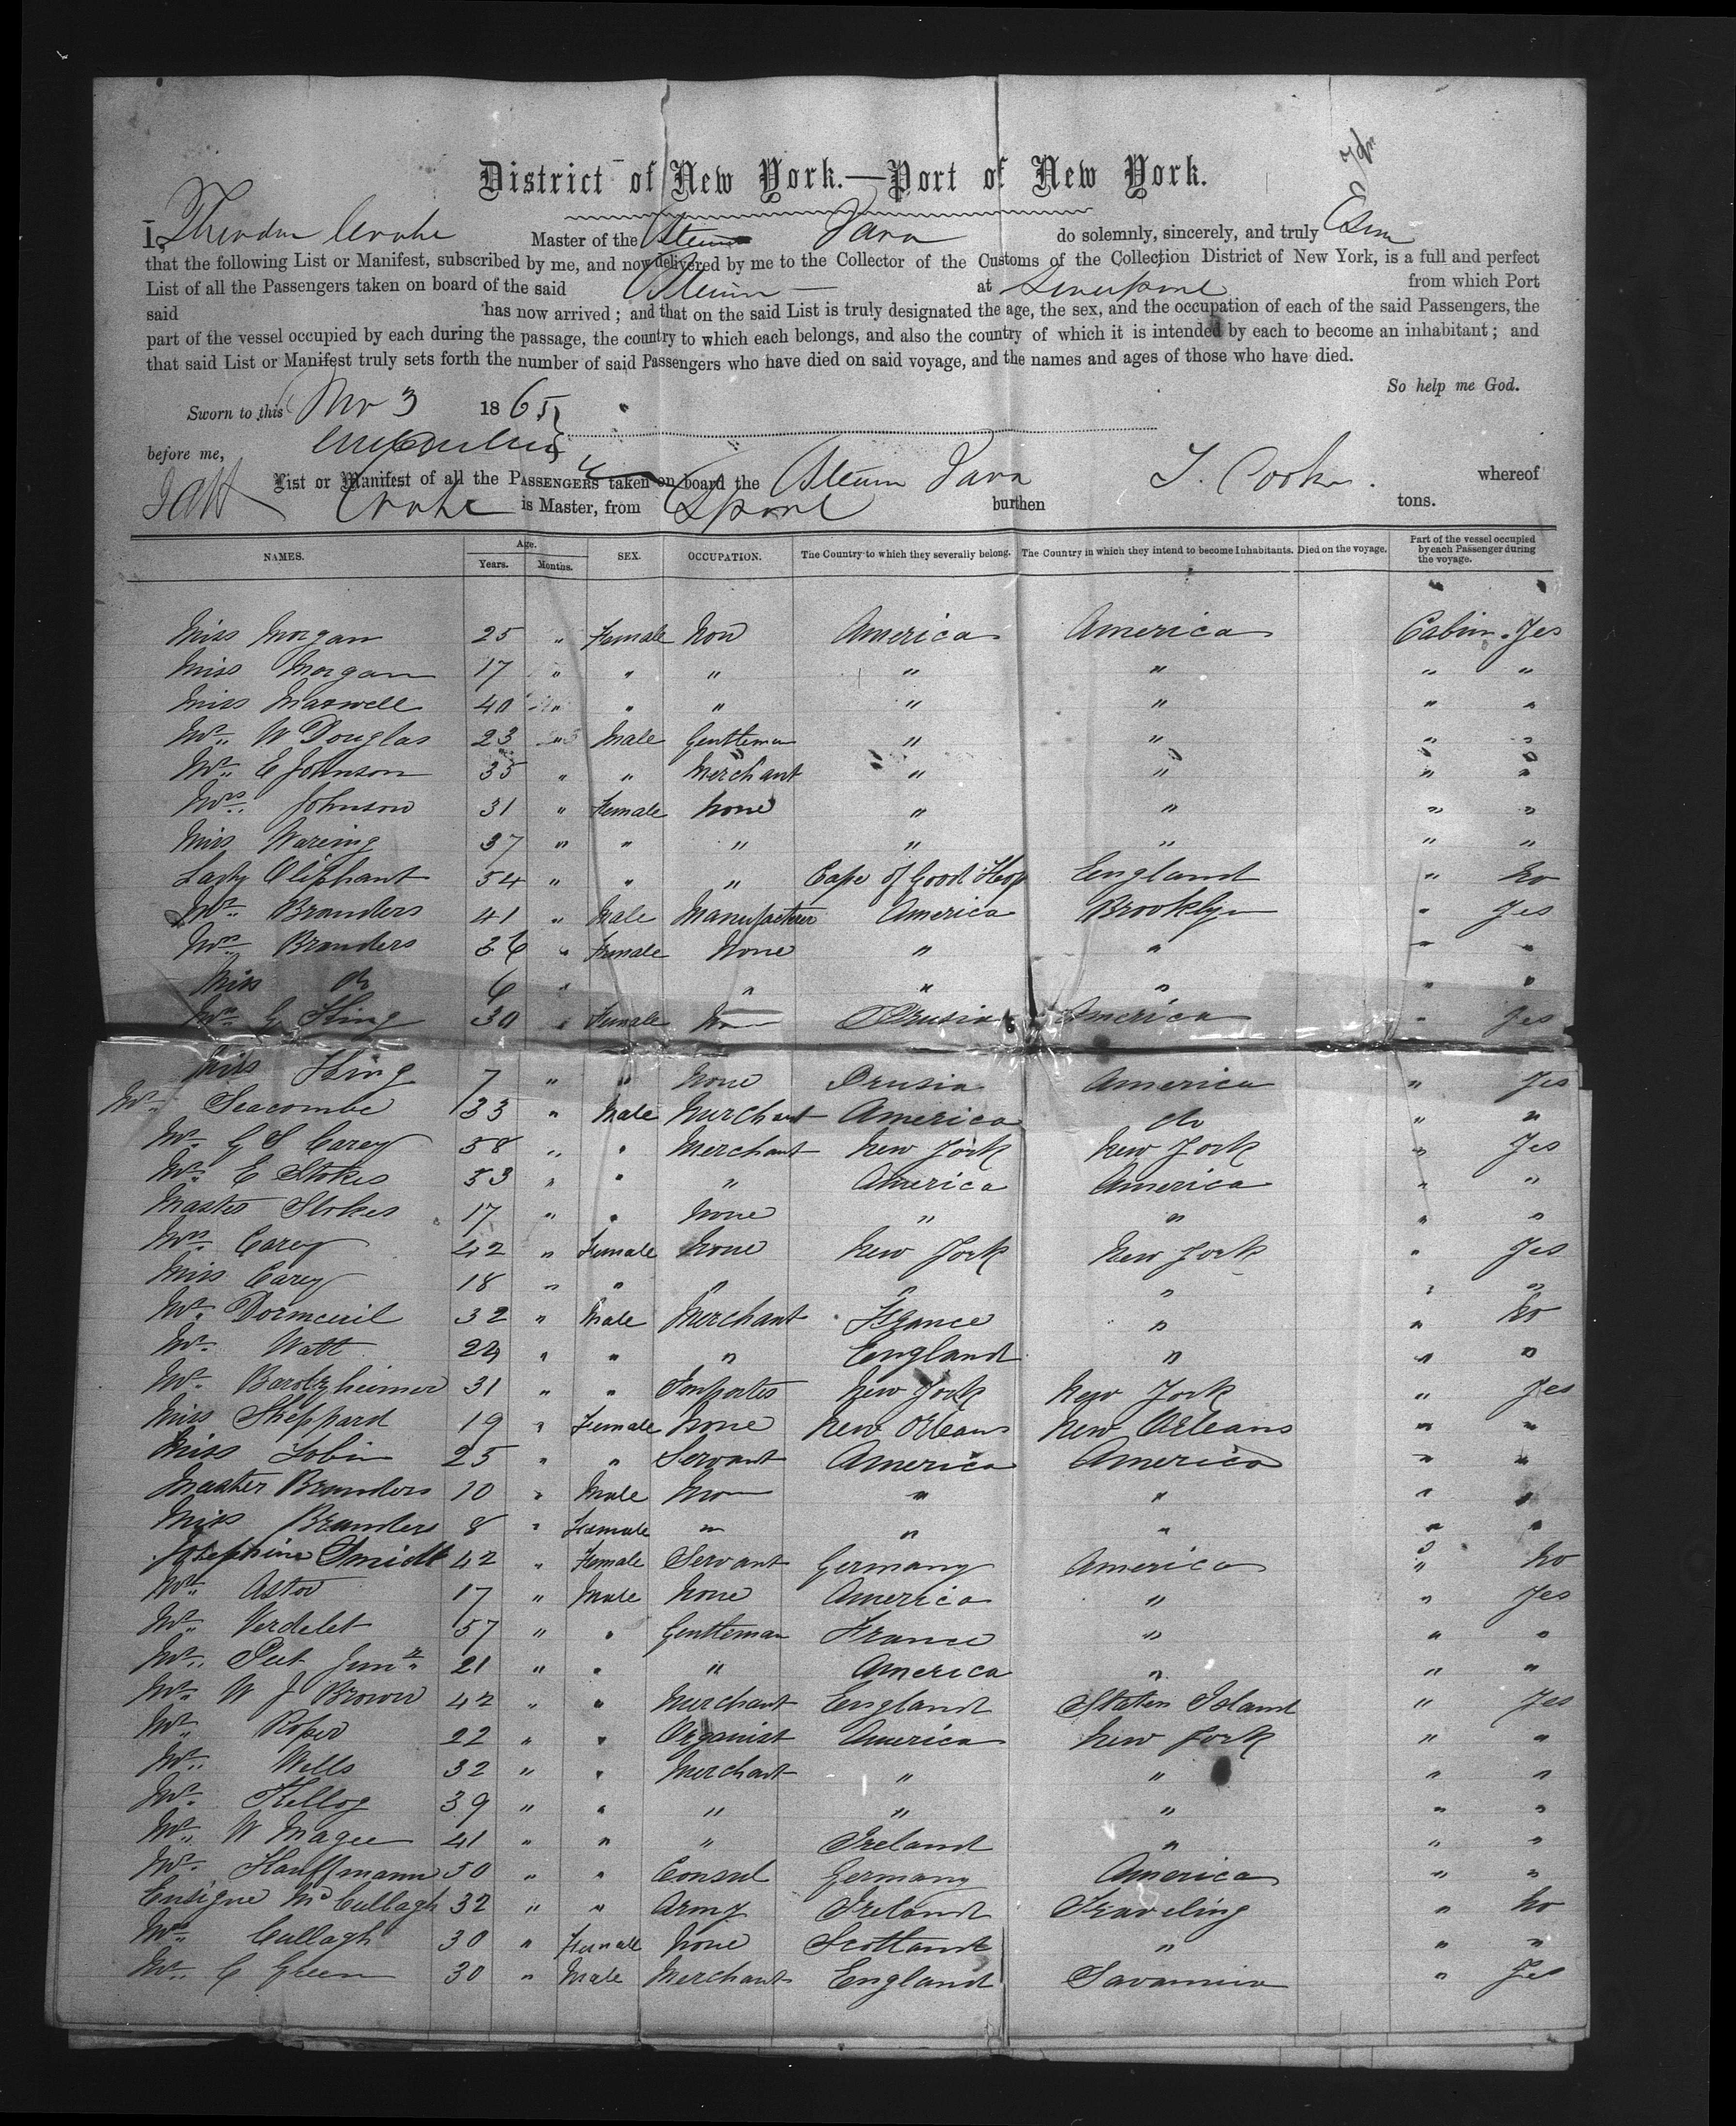 District of New York.—Port of New York.
I, Theodore Cooke Master of the Steamer Java do solemnly, sincerely, and truly Swear
that the following List or Manifest, subscribed by me, and now delivered by me to the Collector of the Customs of the Collection District of New York, is a full and perfect
List of all the Passengers taken on board of the said Steamer at Liverpool from which Port
said has now arrived; and that on the said List is truly designated the age, the sex, and the occupation of each of the said Passengers, the
part of the vessel occupied by each during the passage, the country to which each belongs, and also the country of which it is intended by each to become an inhabitant; and
that said List or Manifest truly sets forth the number of said Passengers who have died on said voyage, and the names and ages of those who have died.
So help me God.
Sworn to this Nov 3 1865
before me,
List or Manifest of all the PASSENGERS taken on board the Steam Java whereof
T. Cook.
Cooke is Master, from Lpool burthen tons.
NAMES. Age. Years. Months. SEX. OCCUPATION. The Country to which they severally belong. The Country in which they intend to become Inhabitants. Died on the voyage. Part of the vessel occupied by each Passenger during the voyage.
Miss Morgan 25 " Female Non America America Cabin Yes
Miss Morgan 17 " " " " " " "
Miss Maxwell 40 " " " " " " "
Mr. W Douglas 23 " Male Gentleman " " " "
Mr. E Johnson 35 " " Merchant " " " "
Mrs. Johnson 31 " Female None " " " "
Miss Waring 37 " " " " " " "
Lady Oliphant 54 " " " Cape of Good Hop England " No
Mr. Branders 41 " Male Manufacturer America Brooklyn " Yes
Mrs. Branders 36 " Female None " " " "
Miss do 6 " " " " " "
Mrs. G King 30 " Female Prusia America " Yes
Miss King 7 " " None Prusia America " Yes
Mr. Seacombe 33 " Male Merchant America do " "
Mr. G S Carey 58 " " Merchant New York New York " Yes
Mr. E Stokes 53 " " " America America " "
Master Stokes 17 " " None " " " "
Mrs. Carey 42 " Female None New York New York " Yes
Miss Carey 18 " " " " " " "
Mr. Dormeuil 32 " Male Merchant France " " No
Mr. Watt 24 " " " England " " "
Mr. 31 " " Importer New York New York " Yes
Miss Sheppard 19 " Female None New Orleans New Orleans " "
Miss Tobin 25 " " Servant America America " "
Master Branders 10 " Male " " " "
Miss Branders 8 " Female " " " " "
Josephine Smidt 42 " Female Servant Germany America " No
Mr. Astor 17 " Male None America " " Yes
Mr. Verdelet 57 " " Gentleman France " " "
Mr. Junr. 21 " " " America " " "
Mr. W J Brown 42 " " Merchant England Staten Island " Yes
Mr. Roper 22 " " Organist America New York " "
Mr. Wells 32 " " Merchant " " " "
Mr. Kellog 39 " " " " " " "
Mr. W Magee 41 " " " Ireland " " "
Mr. Kauffmann 50 " " Consul Germany America " "
Ensigne McCullagh 32 " " Army Ireland Traveling " No
Mrs. Cullagh 30 " Female None Scotland " " "
Mr. C Green 30 " Male Merchant England Savannia " Yes